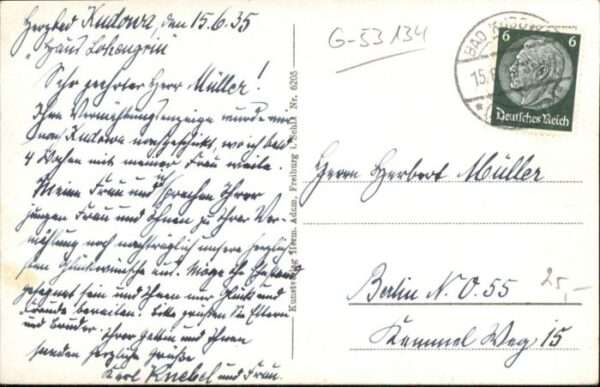 Herzbad Kudowa, den 15.6.35
"Haus Lohengrin"
Sehr geehrter Herr Müller!
Ihre Vermählungsanzeige wurde mir
nach Kudowa nachgeschickt, wo ich bald
4 Wochen mit meiner Frau weile.
Meine Frau und ich sprechen Ihrer
jungen Frau und Ihnen zu Ihrer Ver-
mählung noch nachträglich unsere herzlich-
sten Glückwünsche aus. Möge Ihr Ehestand
gesegnet sein und Ihnen nur Glück und
Freude bereiten. Bitte grüßen Sie Eltern
und Bruder. Ihrer Gattin und Ihnen
senden herzliche Grüße
Karl Knebel und Frau.
Kunstverlag Herm. Adam, Freiburg i. Schls. Nr. 6205
G-53134
BAD KUDOWA
15.6
6 6
Deutsches Reich
Herrn Herbert Müller
Berlin N.O. 55
Kemmel Weg 15
25,-